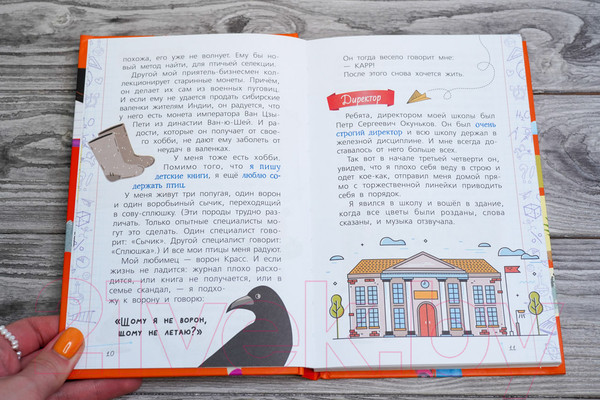 похожа, его уже не волнует. Ему бы но-
вый метод найти, для птичьей селекции.
Другой мой приятель-бизнесмен кол-
лекционирует старинные монеты. Причём,
он делает их сам из военных пуговиц.
И если ему не удается продать сибирские
валенки жителям Индии, он радуется, что
у него есть монета императора Ван Цзы-
Пети из династии Ван-ю-Шей. И ра-
дости, которые он получает от свое-
го хобби, не дают ему заболеть от
неудач в валенках.
У меня тоже есть хобби.
Помимо того, что я пишу
детские книги, я ещё люблю со-
держать птиц.
У меня живут три попугая, один ворон
и один воробьиный сычик, переходящий
в сову-сплюшку. (Эти породы трудно раз-
личать. Только опытные специалисты мо-
гут это сделать. Один специалист гово-
рит: «Сычик». Другой специалист говорит:
«Сплюшка».) И все мои птицы меня радуют.
Мой любимец — ворон Красс. И если
жизнь не ладится: журнал плохо расхо-
дится, или книга не получается, или в
семье скандал, — я подхо-
жу к ворону и говорю:
«Щому я не ворон,
щому не летаю?»
10
Он тогда весело говорит мне:
— КАРР!
После этого снова хочется жить.
Директор
Ребята, директором моей школы был
Петр Сергеевич Окуньков. Он был очень
строгий директор и всю школу держал в
железной дисциплине. И мне всегда до-
ставалось от него больше всех.
Так вот в начале третьей четверти он,
увидев, что я плохо себя веду в строю и
одет кое-как, отправил меня домой пря-
мо с торжественной линейки приводить
себя в порядок.
Я явился в школу и вошёл в здание,
когда все цветы были розданы, слова
сказаны, и музыка отзвучала.
11